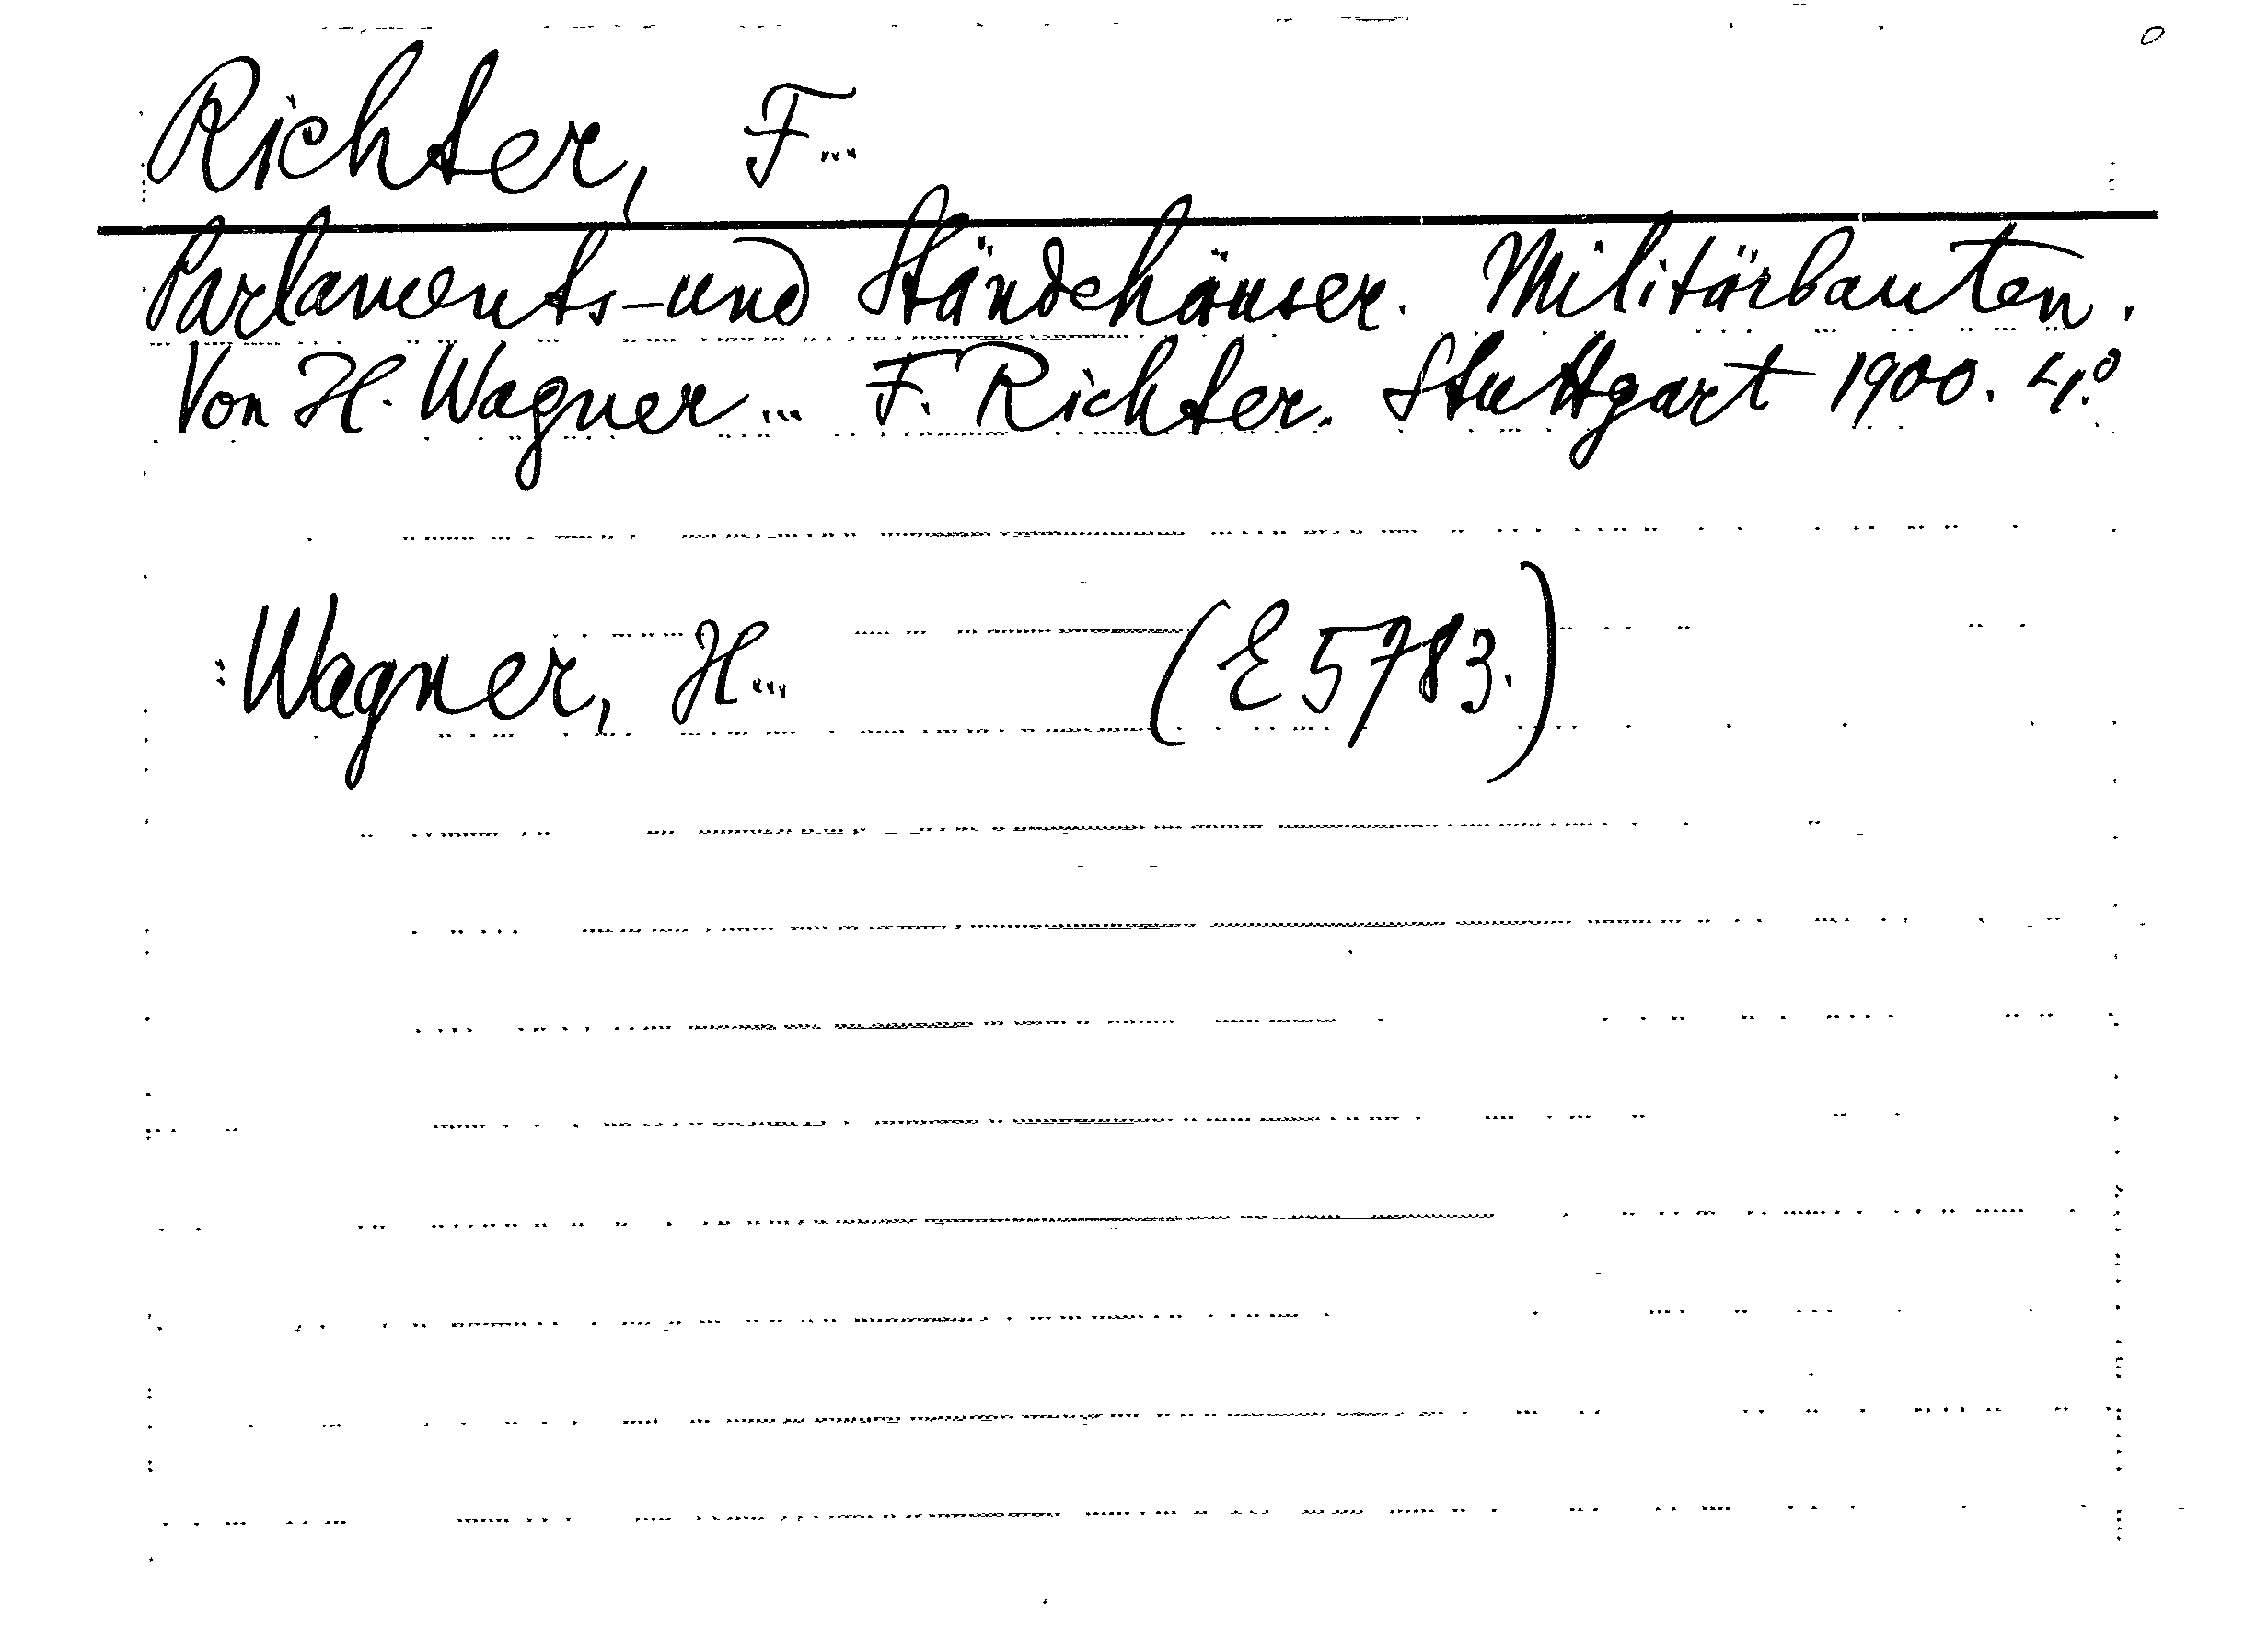 Richter, F...
Parlaments- und Ständehäuser. Militärbauten.
Von H. Wagner... F. Richter. Stuttgart 1900. 4.°
Wagner, H... (E 5783.)